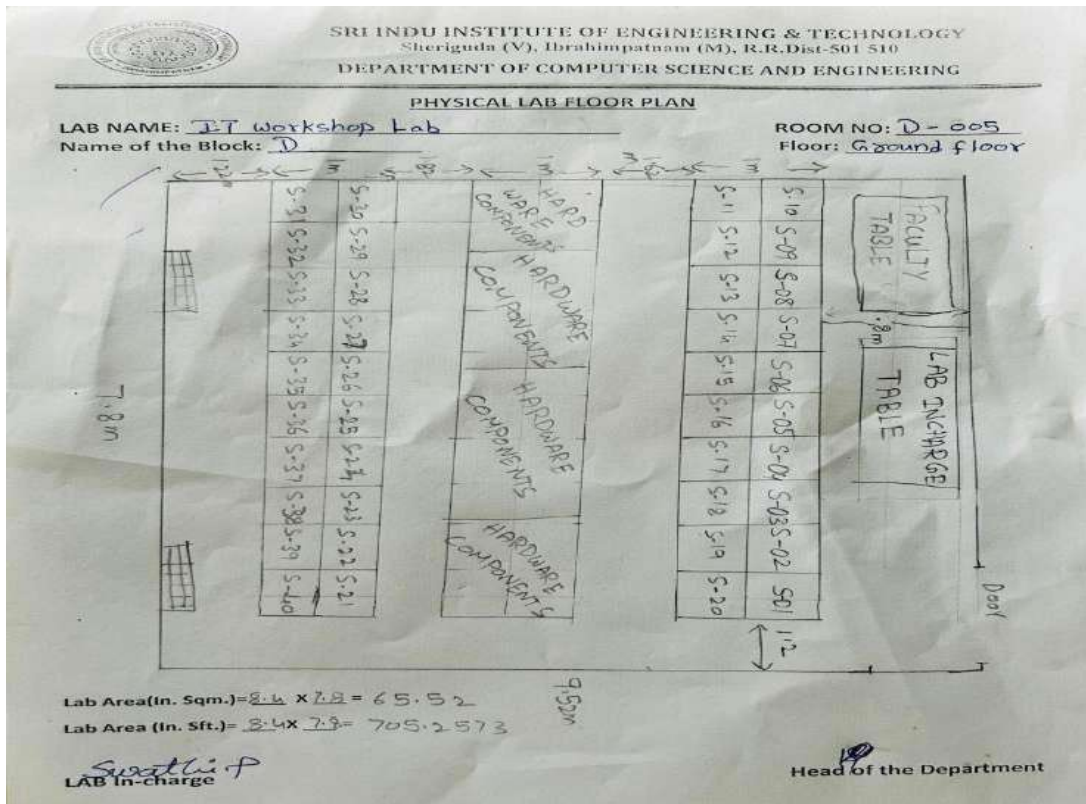 SRI INDU INSTITUTE OF ENGINEERING & TECHNOLOGY
Sheriguda (V), Ibrahimpatnam (M), R.R.Dist-501 510
DEPARTMENT OF COMPUTER SCIENCE AND ENGINEERING
PHYSICAL LAB FLOOR PLAN
LAB NAME: IT Workshop Lab
ROOM NO: D-005
Name of the Block: D
Floor: Ground floor
1.22m
1m
.82
1m
1.62 m
1m
S-31
S-32
S-33
S-34
S-35
S-36
S-37
S-38
S-39
S-40
S-30
S-29
S-28
S-27
S-26
S-25
S-24
S-23
S-22
S-21
HARD
WARE
COMPONENTS
HARDWARE
COMPONENTS
HARDWARE
COMPONENTS
HARDWARE
COMPONENTS
S-11
S-12
S-13
S-14
S-15
S-16
S-17
S-18
S-19
S-20
S-10
S-09
S-08
S-07
S-06
S-05
S-04
S-03
S-02
S-01
FACULTY
TABLE
.8m
LAB INCHARGE
TABLE
Door
1'2
7.8m
9.52m
Lab Area(In. Sqm.)= 8.4 X 7.8 = 65.52
Lab Area (In. Sft.)= 8.4X 7.8= 705.2573
Swathi P
LAB In-charge
Head of the Department